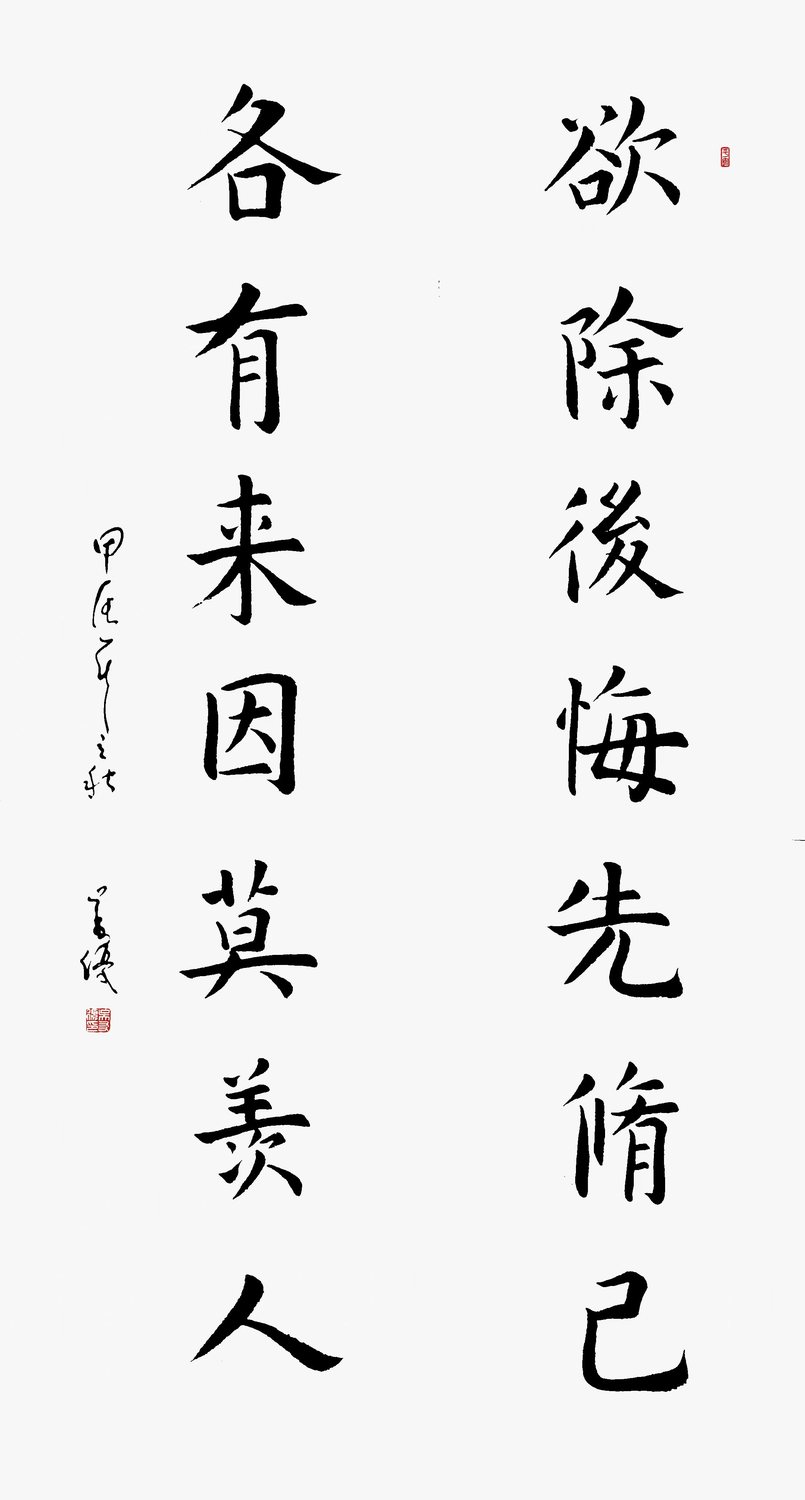 欲除後悔先脩己
各有来因莫羡人
甲辰年之秋